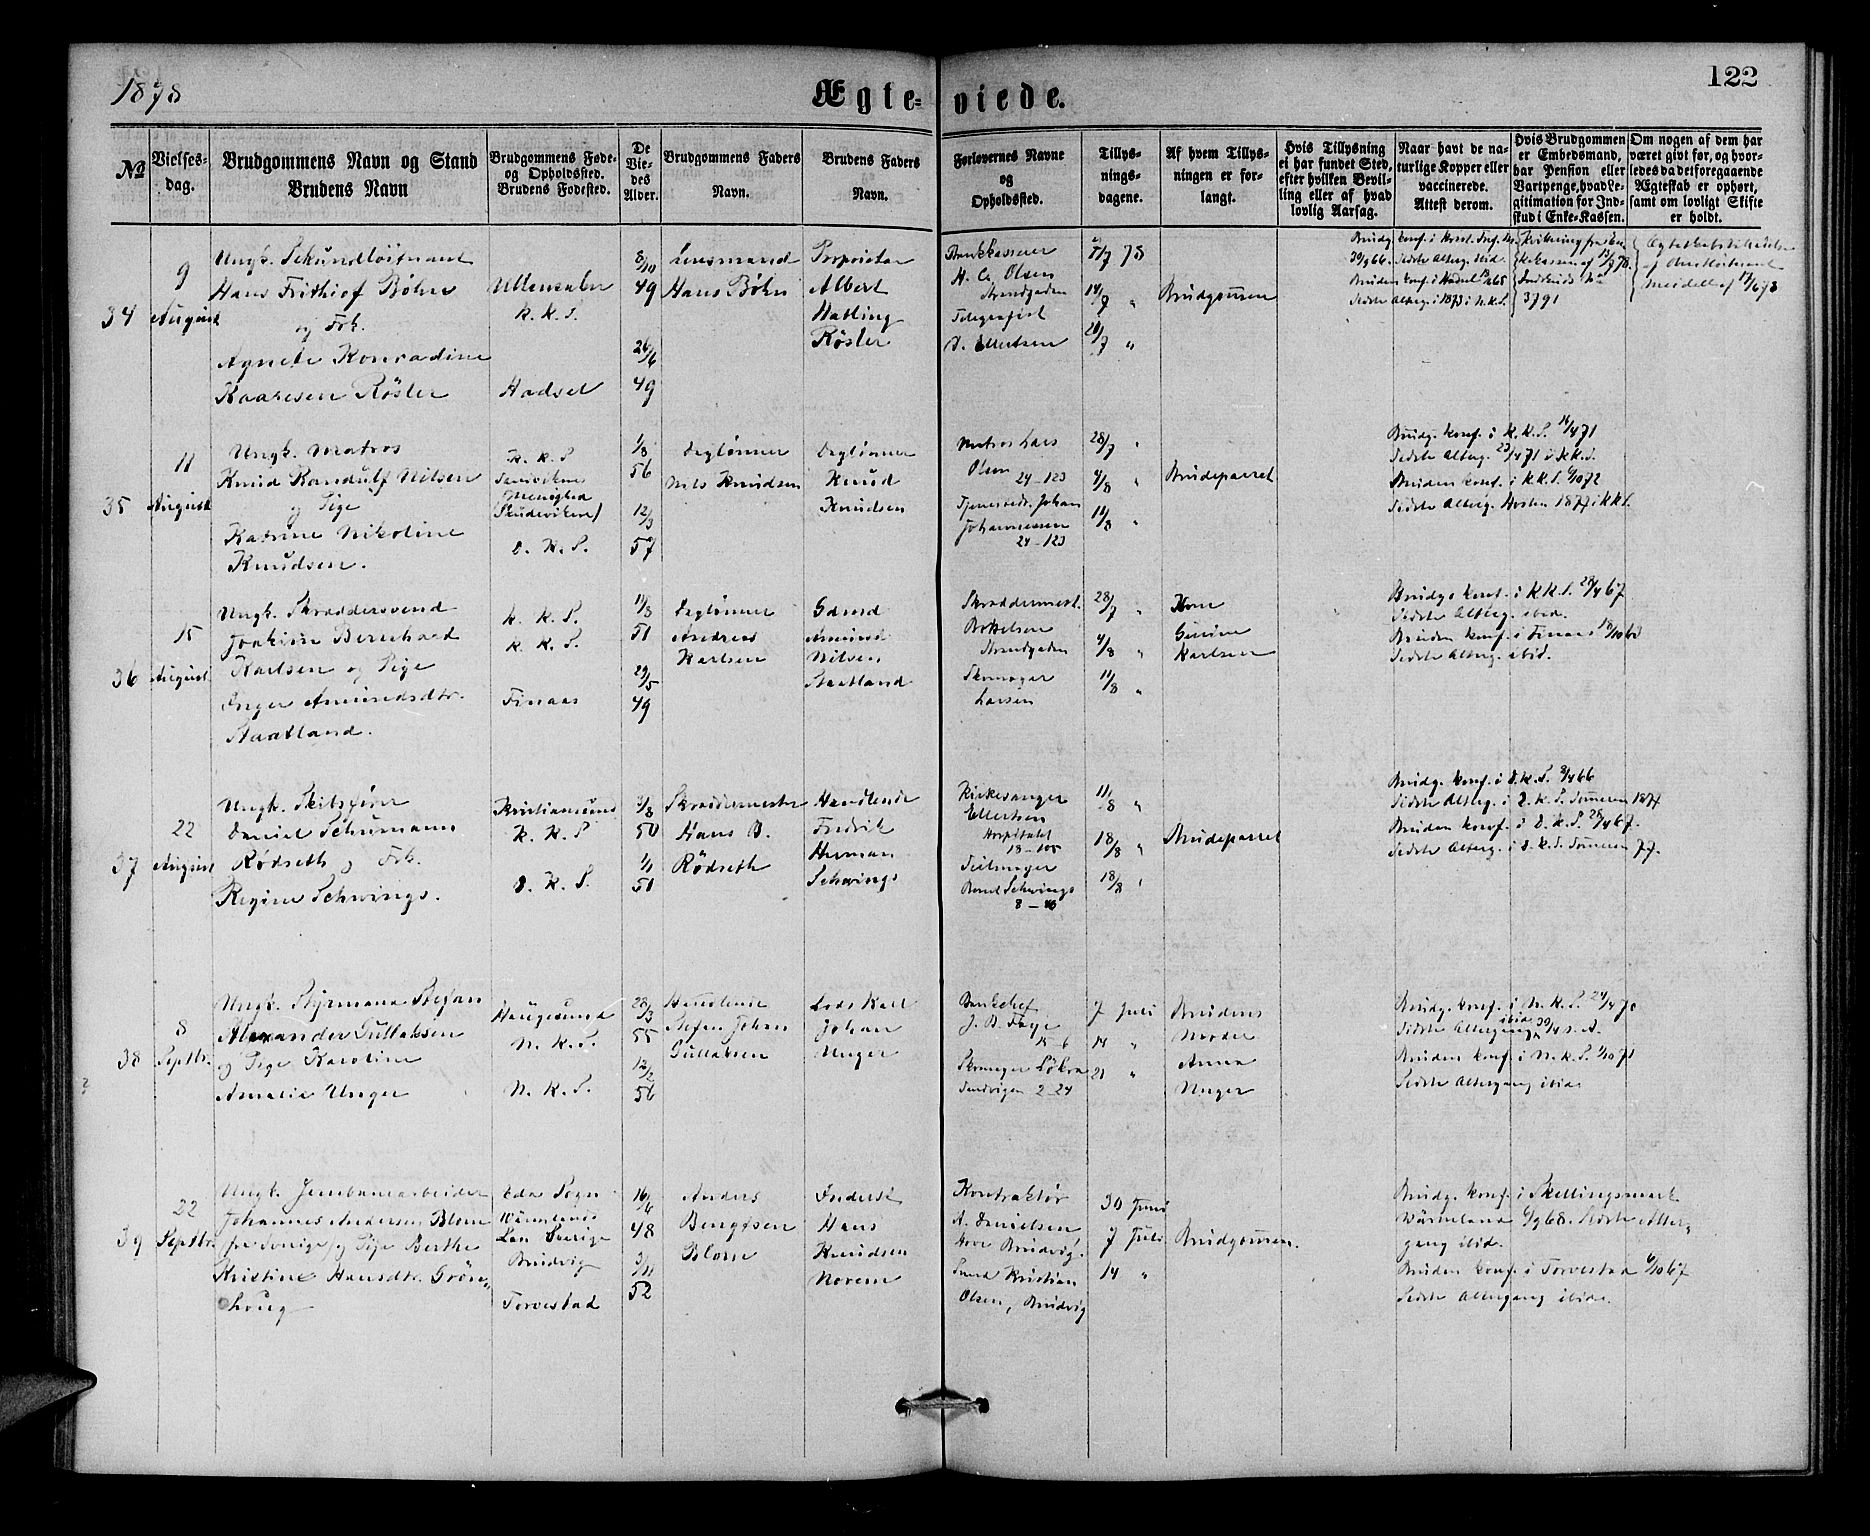 1878
Ægte-
viede.
122
No
Vielses-
dag.
Brudgommens Navn og Stand
Brudens Navn
Brudgommens Føde-
og Opholdssted.
Brudens Fødested.
De
Vie-
des
Alder.
Brudgommens Faders
Navn.
Brudens Faders
Navn.
Forlovernes Navne
og
Opholdssted.
Tillys-
nings-
dagene.
Af hvem Tillys-
ningen er for-
langt.
Hvis Tillysning
ei har fundet Sted,
efter hvilken Bevil-
ling eller af hvad
lovlig Aarsag.
Naar havt de na-
turlige Kopper eller
vaccinerede.
Attest derom.
Hvis Brudgommen
er Embedsmand,
har Pension eller
Vartpenge, hvad Le-
gitimation for Ind-
skud i Enke-Kassen.
Om nogen af dem har
været givt før, og hvor-
ledes da det foregaaende
Ægteskab er ophørt,
samt om lovligt Skifte
er holdt.
34
9
August
Ungk. Sekundløitnant
Hans Frithiof Bøhn
og Frk.
Agnete Konradine
Kaaresen Røsler
Ullensaker
K. K. S.
Hadsel
8/10
49
26/6
49
Lensmand
Hans Bøhn
Proprietær
Albert
Hatling
Røsler
Bankkasserer
H. C. Olsen
Strandgaden
Telegrafist
Ellertsen
/7 78
14/7 "
/7 "
Brudgommen
Brudg. konf. i
30/9 66. Sidste Alterg. ibid.
Bruden konf. i Hadsel 65
Sidste Alterg. i 1873 i N.K.S.
3791
35
11
August
Ungk. Matros
Knud Randulf Nilsen
og Pige
Katrine Nikoline
Knudsen.
K. K. S
Sandvikens
Menighed
(Skudeviken)
D. K. S.
1/8
56
12/3
57
Daglønner
Nils Knudsen
Daglønner
Knud
Knudsen
Matros Lars
Olsen
24-123
Tjenestedr. Johan
Johannessen
24-123
28/7 "
4/8 "
11/8 "
Brudeparret
Brudg. konf. i K. K. S. 16/4 71
Sidste Alterg. 23/4 71 i K.K.S.
Bruden konf. i K.K.S. 6/10 72
Sidste Alterg. Høsten 1877 i K.K.S.
36
15
August
Ungk. Skræddersvend
Joakim Bernhard
Karlsen og Pige
Inger Amundsdtr.
Staatland.
K. K. S.
K. K. S.
Finaas
11/8
51
29/5
49
Daglønner
Andreas
Karlsen
Gdmd
Amund
Nilsen
Staatland
Skræddermest.
Bottelsen
Strandgaden
Skomager
Larsen
28/7 "
4/8 "
11/8 "
Kone
Karlsen
Brudg. konf. i K.K.S. 28/4 67
Sidste Alterg. ibid.
Bruden konf. i Finaas 18/10 63
Sidste Alterg. ibid.
37
22
August
Ungk. Skibsfører
Daniel Schumann
Rødseth og Frk.
Regine Schwings.
Kristiansund
K. K. S
D. K. S.
3/8
50
1/1
51
Skræddermester
Hans B.
Rødseth
Handlende
Fredrik
Herman
Schwings
Kirkesanger
Ellertsen
Hospitalet
18-105
Seilmager
Bernt Schwings
11/8 "
18/8 "
18/8 "
Brudeparret
Brudg. konf. i D.K.S. 8/4 66
Sidste Alterg. i D. K. S. Sommeren 1877
Bruden konf. i D.K.S. 28/4 67.
Sidste Alterg. i D.K.S. Sommeren 77.
38
8
Septbr.
Ungk. Styrmann Stefan
Alexander Gullaksen
og Pige Karoline
Amalie Unger
Haugesund
N. K. S.
N. K. S.
28/3
55
12/2
56
Handlende
Stefan Johan
Gullaksen
Lods Karl
Johan
Unger
Bankchef
J. B. Faye
15-6
Skomager
Sandvigen 2-24
7 Juli
14 "
21 "
Brudens
Moder
Anna
Unger
Brudg. konf. i N. K. S. 24/4 70
Sidste Altergang ibid
Bruden konf. i N. K. S. 1/10 71
Sidste Altergang ibid.
39
22
Septbr.
Ungk. Jernbanearbeider
Johannes Andersen Blom
fra Sverige og Pige Berthe
Kristine Hansdtr. Grøn-
houg
Eda Sogn
Wärmlands
Län Sverige
Bruvig
Torvestad
16/6
48
3/11
52
Anders
Bengtsen
Blom
Inderst
Hans
Knudsen
Norem
Kontraktør
A. Danielsen
Bruvig.
Smed Kristian
Olsen, Bruvig
30 Juni
7 Juli
14 "
Brudgommen.
Brudg. konf. i Skillingsmark
Wärmland 6/9 68. Sidste Alter-
gang ibid.
Bruden konf. i Torvestad 6/10 67
Sidste Altergang ibid.